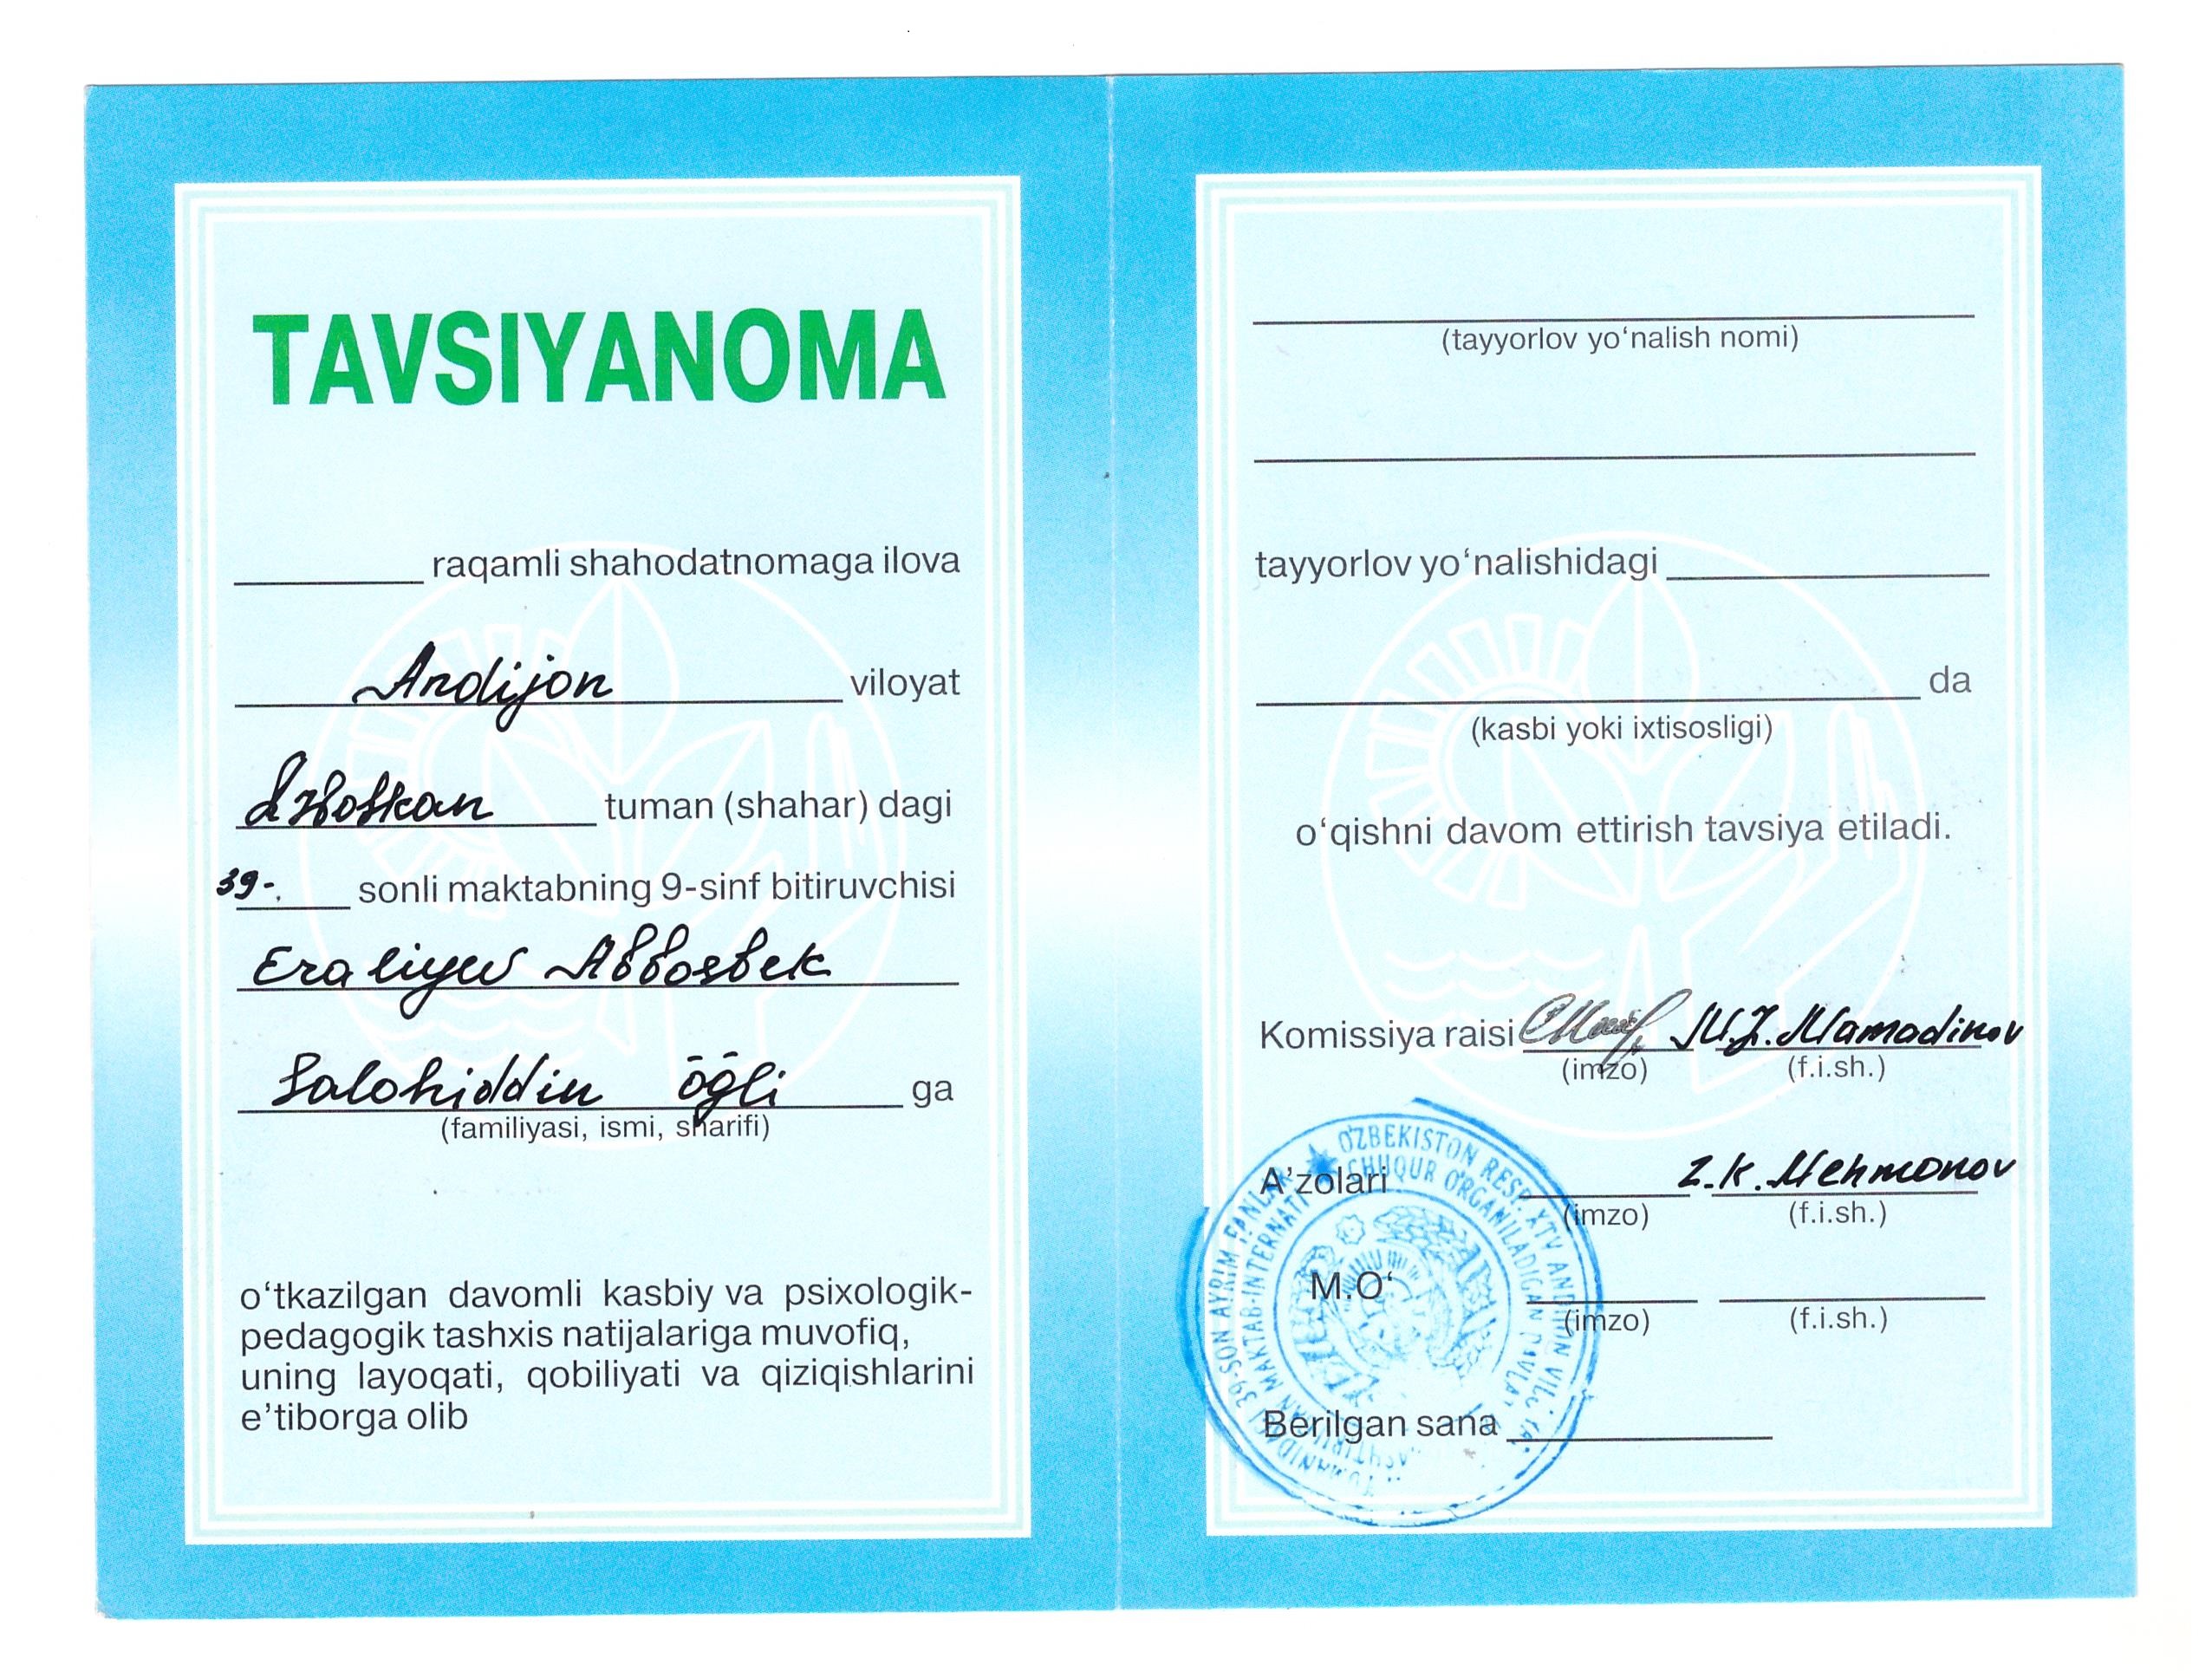 TAVSIYANOMA
________ raqamli shahodatnomaga ilova
Andijon viloyat
Izboskan tuman (shahar) dagi
39-. sonli maktabning 9-sinf bitiruvchisi
Eraliyev Abbosbek
Salohiddin ōḡli ga
(familiyasi, ismi, sharifi)
o‘tkazilgan davomli kasbiy va psixologik-
pedagogik tashxis natijalariga muvofiq,
uning layoqati, qobiliyati va qiziqishlarini
e’tiborga olib
(tayyorlov yo‘nalish nomi)
tayyorlov yo‘nalishidagi
da
(kasbi yoki ixtisosligi)
o‘qishni davom ettirish tavsiya etiladi.
Komissiya raisi M.J. Mamadinov
(imzo) (f.i.sh.)
A’zolari Z.K. Mehmonov
(imzo) (f.i.sh.)
M.O‘
(imzo) (f.i.sh.)
Berilgan sana
O'ZBEKISTON RESP. XTV ANDIJON
39-SON AYRIM FANLAR
CHUQUR O'RGANILADIGAN
MAKTAB-INTERNATI